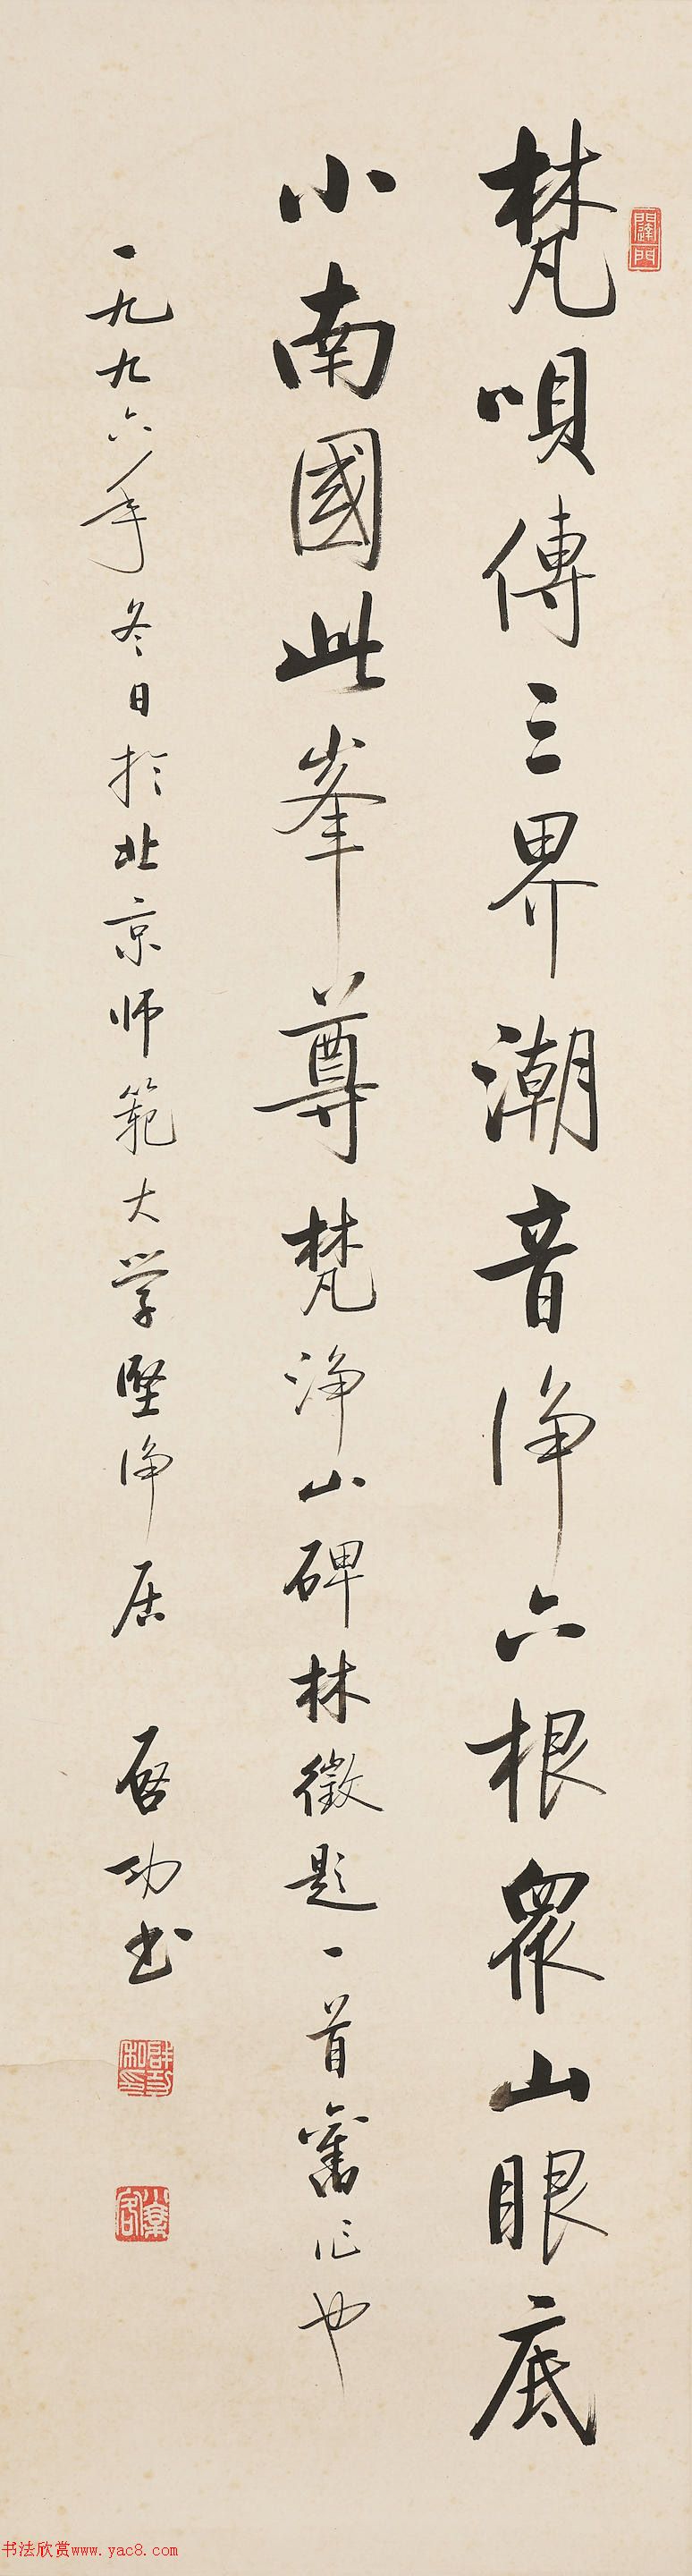 梵唄傳三界潮音净六根衆山眼底
小南國此峯尊梵浄山碑林徵題一首舊作也
一九九六年冬日於北京师範大学堅净居 启功书
书法欣赏www.yac8.com